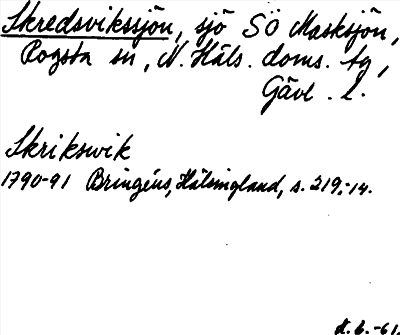 Skredsvikssjön, sjö SÖ Masksjön,
Rogsta sn, N. Häls. doms. tg,
Gävl. l.
Skrikswik
1790-91 Bringéus, Hälsingland, s. 219,-14.
K. b. -61.